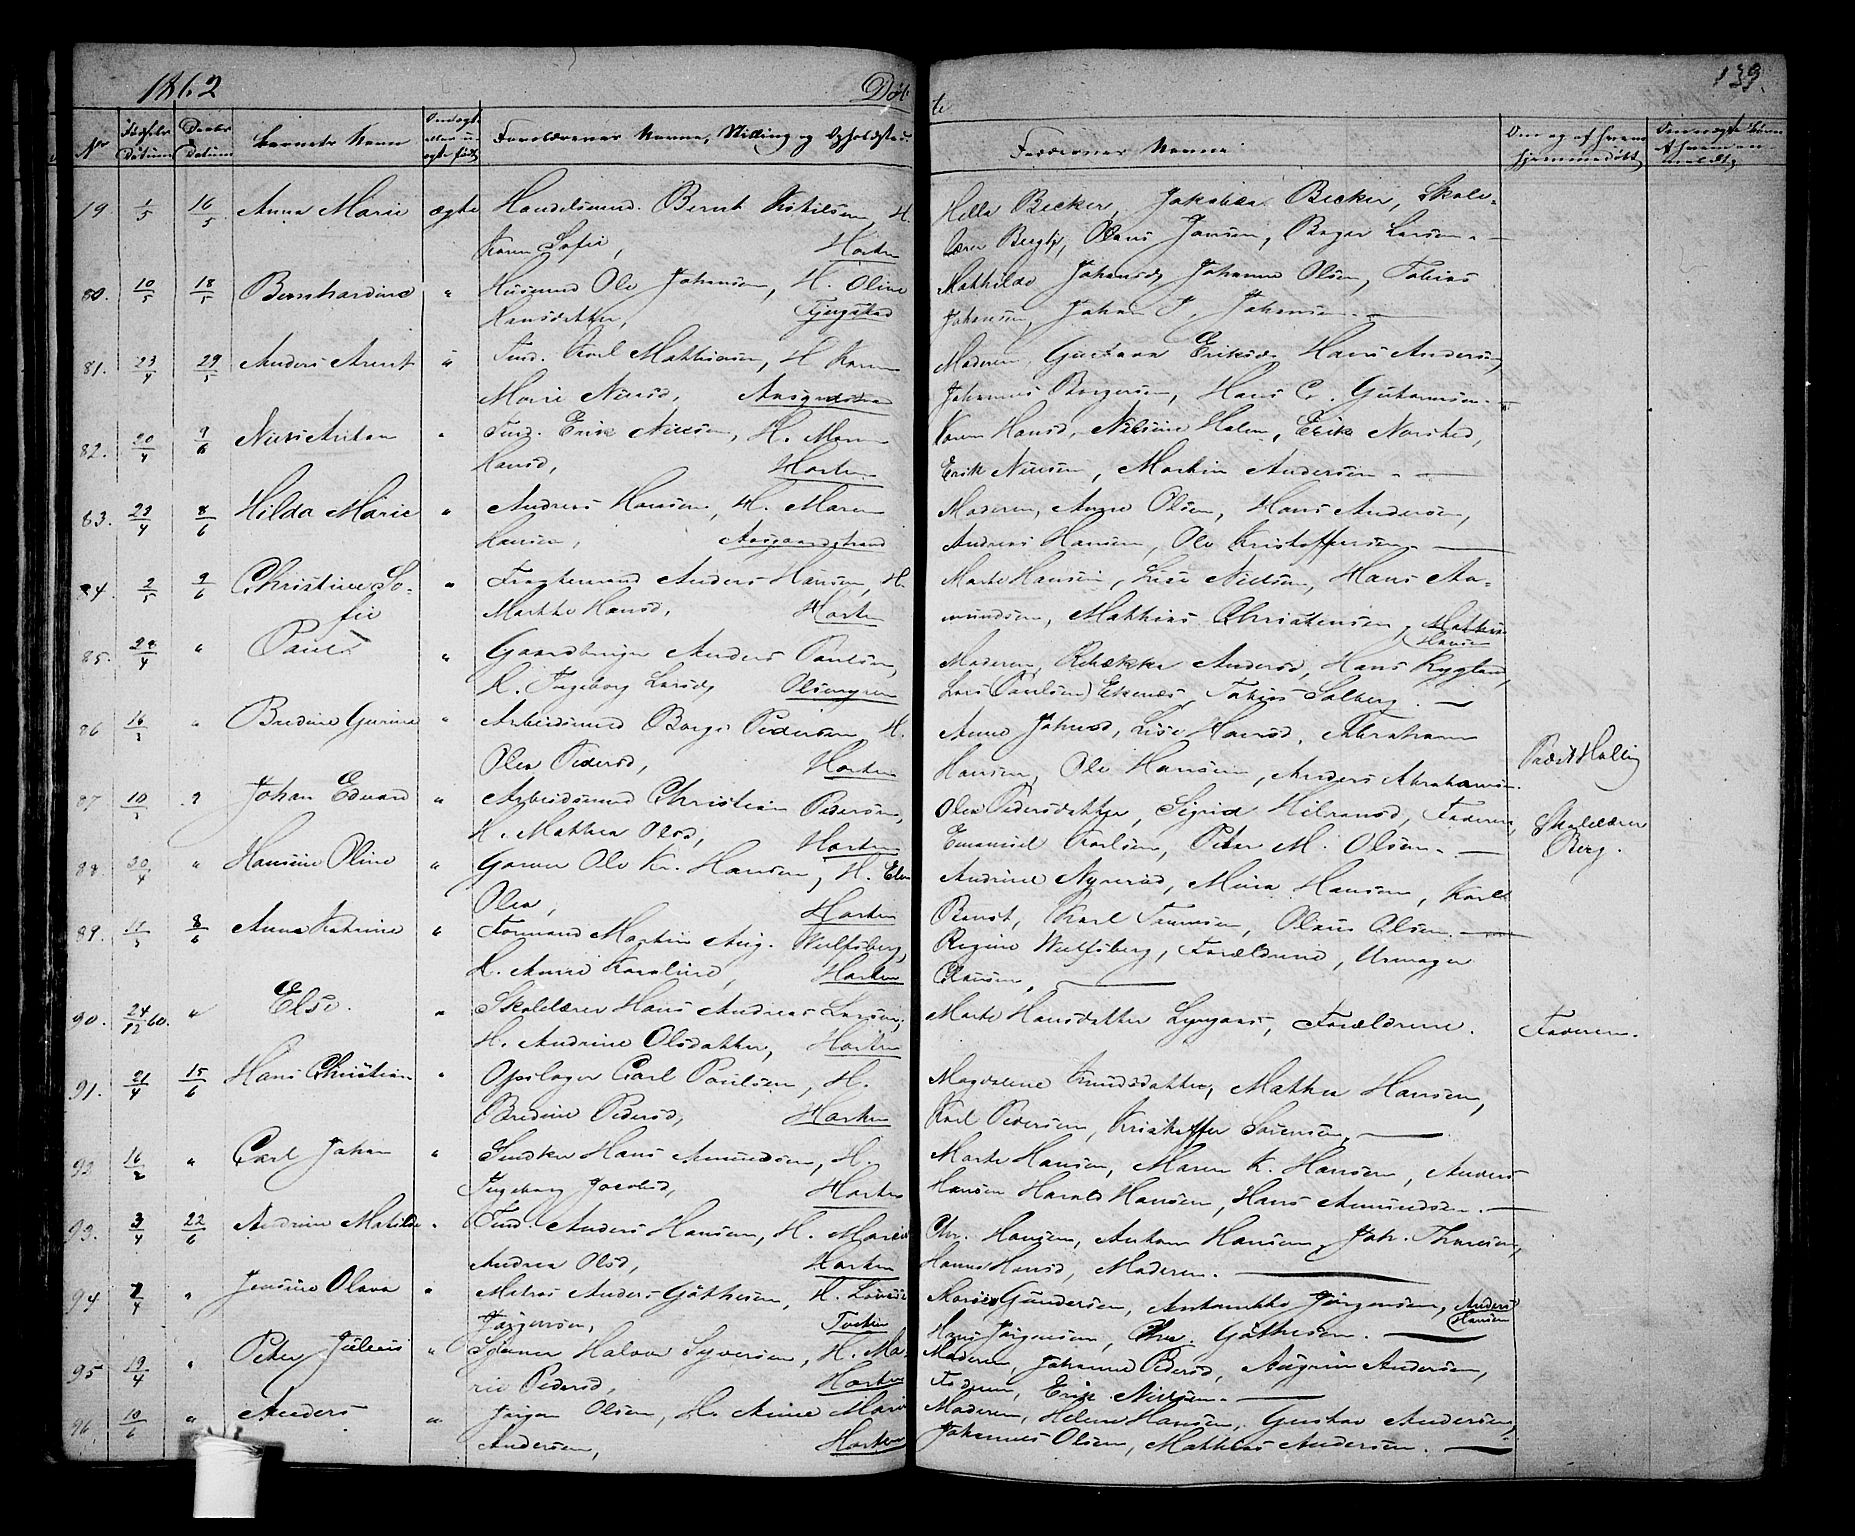 1862 Døbte 139.
No Fødsels Datum Daabs Datum Barnets Navn Om ægte eller uægte født Forældrenes Navne, Stilling og Opholdssted
Faddernes Navne
79 1/5 16/5 Anna Marie ægte Handelsmand Bernt Kittilsen, H.
Karen Sofie, Horten
Helle Becker, Jakobæa Becker, Skole-
lærer Berg, Olaus Jansen, Borger Larsen.
80. 10/5 18/5 Bernhardine " Husmand Ole Johansen, H. Oline
Hansdatter,
Mathilde Johansd, Johanne Olsen, Tobias
Johansen, Johan J. Johansen.
81. 23/4 29/5 Anders Arent " Tmd. Karl Mathisen, H. Karen
Marie Nilsd, Aasgaardstrand
Moderen, Gustava Eriksd, Hans Andersen,
Johannes Borgersen, Hans C. Gutormsen.
82. 20/4 9/6 Nils Anton " Tmd. Erik Nilsen, H. Maren
Hansd, Horten
Karen Hansd, Nilsine Holm, Erik Norsted,
Erik Nilsen, Martin Andersen.
83. 23/4 8/6 Hilda Marie " Andreas Hansen, H. Maren
Hansen, Aasgaardstrand
Moderen, Anne Olsen, Hans Andersen,
Andreas Hansen, Ole Kristoffersen.
84. 2/5 9/6 Christine So- " Fragtemand Anders Hansen, H.
fie Marthe Hansd, Horten
Marte Hansen, Lise Nielsen, Hans Aa-
mundsen, Mathias Christensen, Mathias
Hansen
85. 24/4 " Paul " Gaardbruger Anders Paulsen,
H. Ingeborg Larsd,
Moderen, Rebekka Andersd, Hans Rygland,
Lars (Paulsen) Ekenæs, Tobias Solberg.
86 16/3 " Bredine Gurine " Arbeidsmand Borge Pedersen, H.
Olea Pedersd, Horten
Anne Johnsd, Lise Hansd, Abraham
Hansen, Ole Hansen, Anders Abrahamsen.
Præst Halling
87 10/3 " Johan Edvard " Arbeidsmand Christian Pedersen,
H. Mathea Olsd, Horten
Olea Pedersdatter, Sigrid Halvorsd, Faderen,
Emanuel Karlsen, Peter M. Olsen.
Skolelærer
Berg.
88. 20/4 " Hansine Oline " Garver Ole Kr. Hansen, H. Elen
Olea, Horten
Andrine Nyerød, Mina Hansen, Karl
Karl Tannesen, Olaus Olsen.
89. 11/3 8/6 Anna Katrine " Formand Martin Aug. Wulfsberg,
H. Anne Karoline, Horten
Regine Wulfsberg, Forældrene, Urmager
Clausen,
90. 24/12 60. " Else. " Skolelærer Hans Andreas Larsen,
H. Andrine Olsdatter, Horten
Marte Hansdatter Lyngaas, Forældrene.
Faderen.
91. 21/4 15/6 Hans Christian " Opsilager Carl Paulsen, H.
Bredine Pedersd, Horten
Magdalene Knudsdatter, Mathea Hansen,
Karl Pedersen, Kristoffer Sørensen,
92 16/2 " Carl Johan " Snedker Hans Amundsen, H.
Ingeborg Jacobsd, Horten
Marte Hansen, Maren K. Hansen, Anders
Hansen, Harald Hansen, Hans Amundsen.
93. 3/4 22/6 Andrine Matilde " Tmd. Anders Hansen, H. Maren
Andrea Olsd, Horten
Chr. Hansen, Anton Hansen, Joh. Thoresen,
Hanna Hansd, Moderen.
94 7/4 " Jensine Olava " Matros Anders Gøthesen, H. Lovise
Jørgensen,
Maren Gundersen, Antonette Jørgensen, Anders
Hansen
Hans Jørgensen, Chr. Gøthesen.
95 19/4 " Peter Julius " Halvor Syversen, H. Ma-
rie Pedersd, Horten
Moderen, Johanne Pedersd, Andersen,
Faderen, Erik Nilsen.
96. 10/6 " Anders " Jørgen Olsen, H. Anne Marie
Andersen, Horten
Moderen, Helene Hansen, Gustav Andersen,
Johannes Olsen, Mathias Andersen.